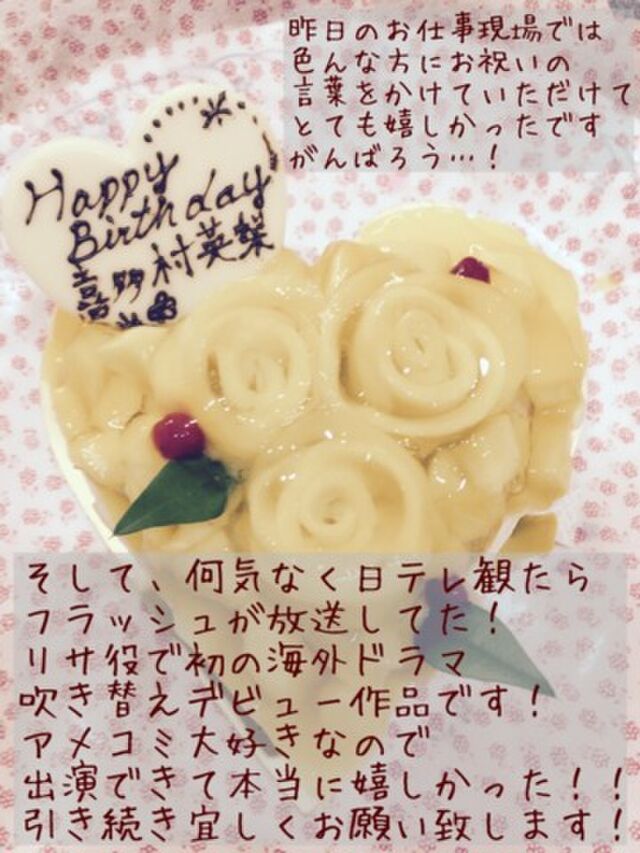 昨日のお仕事現場では
色んな方にお祝いの
言葉をかけていただけて
とても嬉しかったです
がんばろう…！
Happy
Birthday
喜多村英梨
そして、何気なく日テレ観たら
フラッシュが放送してた！
リサ役で初の海外ドラマ
吹き替えデビュー作品です！
アメコミ大好きなので
出演できて本当に嬉しかった！！
引き続き宜しくお願い致します！